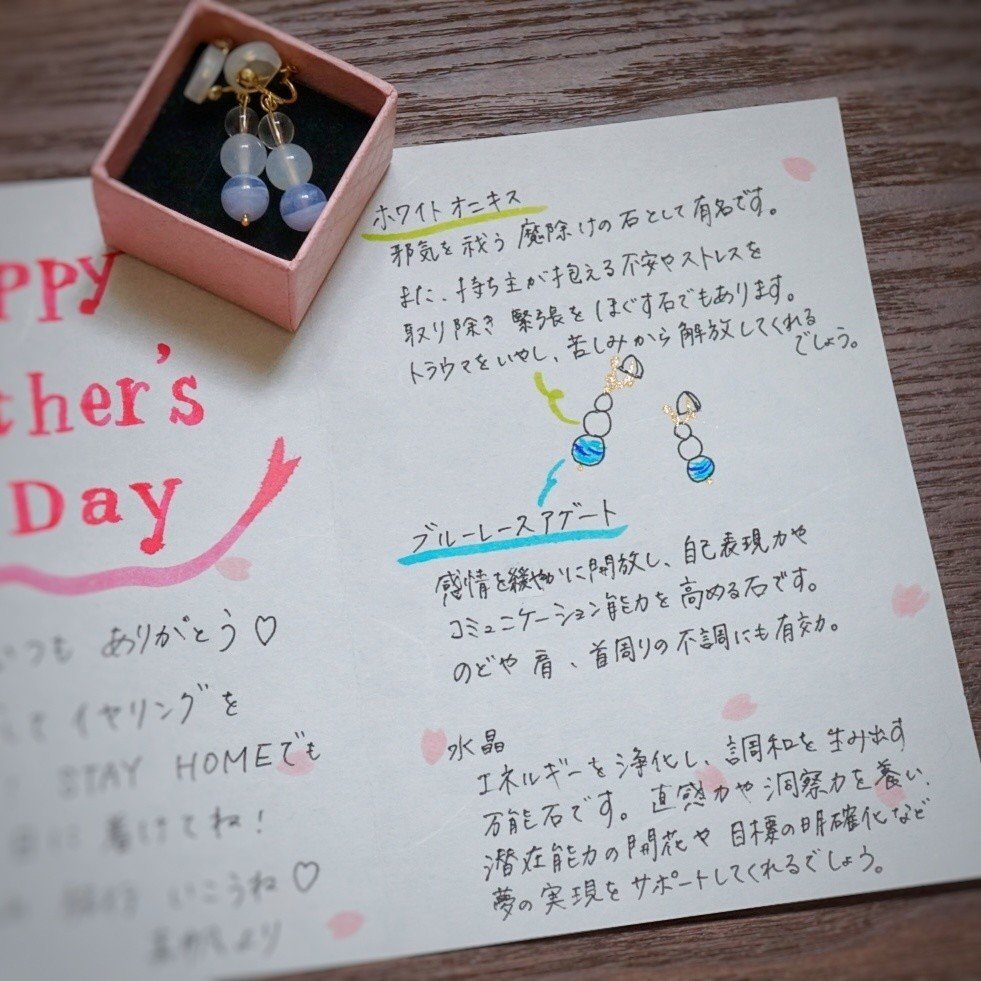 ppy
ther's
Day
いつも ありがとう♡
イヤリングを
STAY HOMEでも
着けてね!
旅行 いこうね♡
より
ホワイトオニキス
邪気を祓う魔除けの石として有名です。
また、持ち主が抱える不安やストレスを
取り除き緊張をほぐす石でもあります。
トラウマをいやし、苦しみから解放してくれる
でしょう。
ブルーレースアゲート
感情を緩やかに開放し、自己表現力や
コミュニケーション能力を高める石です。
のどや肩、首周りの不調にも有効。
水晶
エネルギーを浄化し、調和を生み出す
万能石です。直感力や洞察力を養い、
潜在能力の開花や目標の明確化など
夢の実現をサポートしてくれるでしょう。